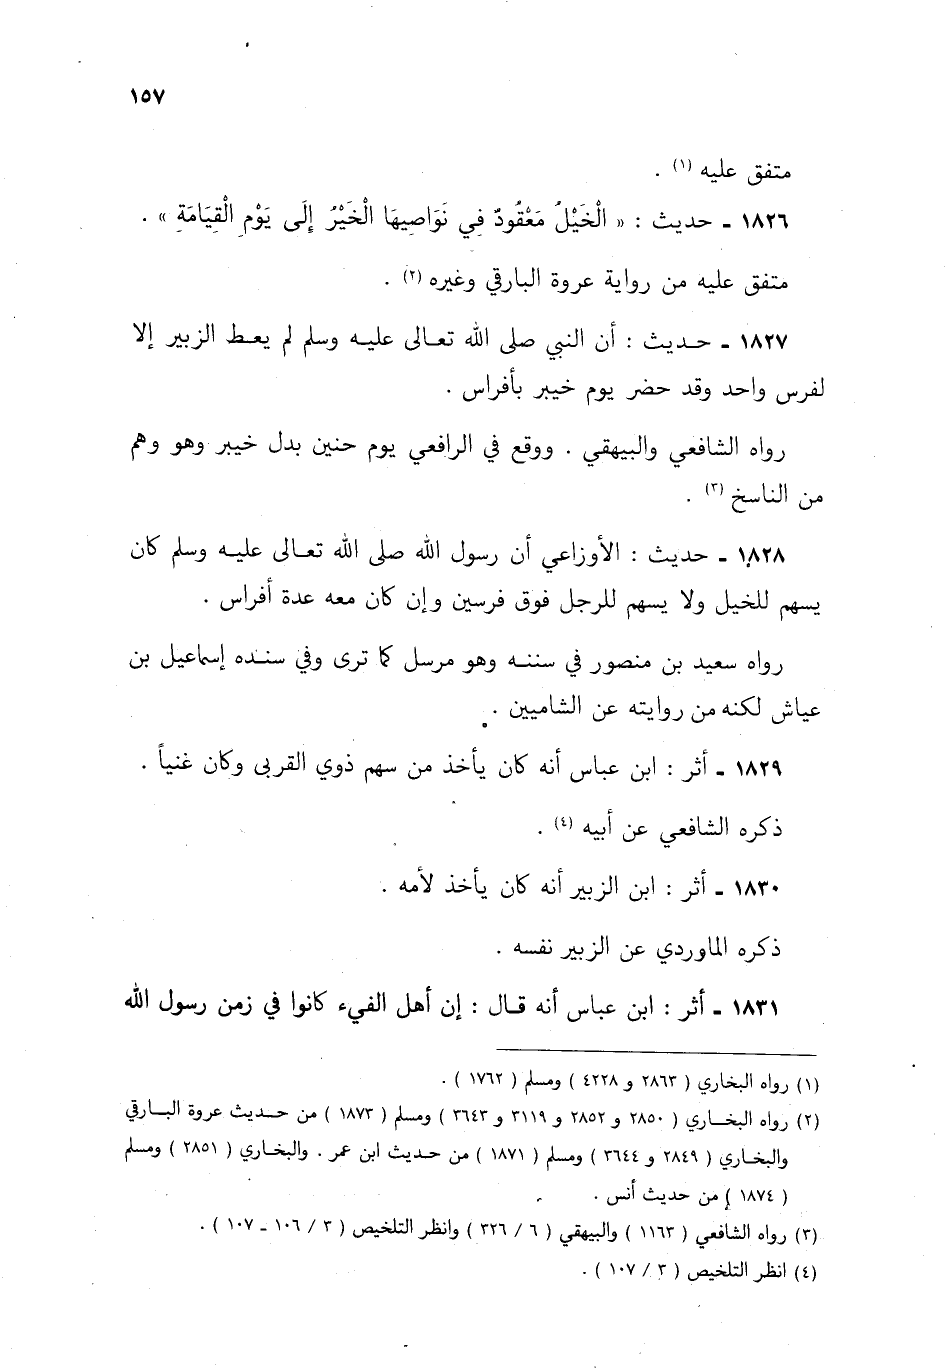 ١٥٧
متفق عليه (١) .
١٨٢٦ ـ حديث : « الْخَيْلُ مَعْقُودٌ فِي نَوَاصِيهَا الْخَيْرُ إِلَى يَوْمِ الْقِيَامَةِ » .
متفق عليه من رواية عروة البارقي وغيره (٢) .
١٨٢٧ ـ حديث : أن النبي صلى الله تعالى عليه وسلم لم يعط الزبير إلا
لفرس واحد وقد حضر يوم خيبر بأفراس .
رواه الشافعي والبيهقي . ووقع في الرافعي يوم حنين بدل خيبر وهو وهم
من الناسخ (٣) .
١٨٢٨ ـ حديث : الأوزاعي أن رسول الله صلى الله تعالى عليه وسلم كان
يسهم للخيل ولا يسهم للرجل فوق فرسين وإن كان معه عدة أفراس .
رواه سعيد بن منصور في سننه وهو مرسل كما ترى وفي سنده إسماعيل بن
عياش لكنه من روايته عن الشاميين .
١٨٢٩ ـ أثر : ابن عباس أنه كان يأخذ من سهم ذوي القربى وكان غنياً .
ذكره الشافعي عن أبيه (٤) .
١٨٣٠ ـ أثر : ابن الزبير أنه كان يأخذ لأمه .
ذكره الماوردي عن الزبير نفسه .
١٨٣١ ـ أثر : ابن عباس أنه قال : إن أهل الفيء كانوا في زمن رسول الله
(١) رواه البخاري ( ٢٨٦٣ و ٤٢٢٨ ) ومسلم ( ١٧٦٢ ) .
(٢) رواه البخاري ( ٢٨٥٠ و ٢٨٥٢ و ٣١١٩ و ٣٦٤٣ ) ومسلم ( ١٨٧٣ ) من حديث عروة البارقي
والبخاري ( ٢٨٤٩ و ٣٦٤٤ ) ومسلم ( ١٨٧١ ) من حديث ابن عمر . والبخاري ( ٢٨٥١ ) ومسلم
( ١٨٧٤ ) من حديث أنس .
(٣) رواه الشافعي ( ١١٦٣ ) والبيهقي ( ٦ / ٣٢٦ ) وانظر التلخيص ( ٣ / ١٠٦ ـ ١٠٧ ) .
(٤) انظر التلخيص ( ٣ / ١٠٧ ) .